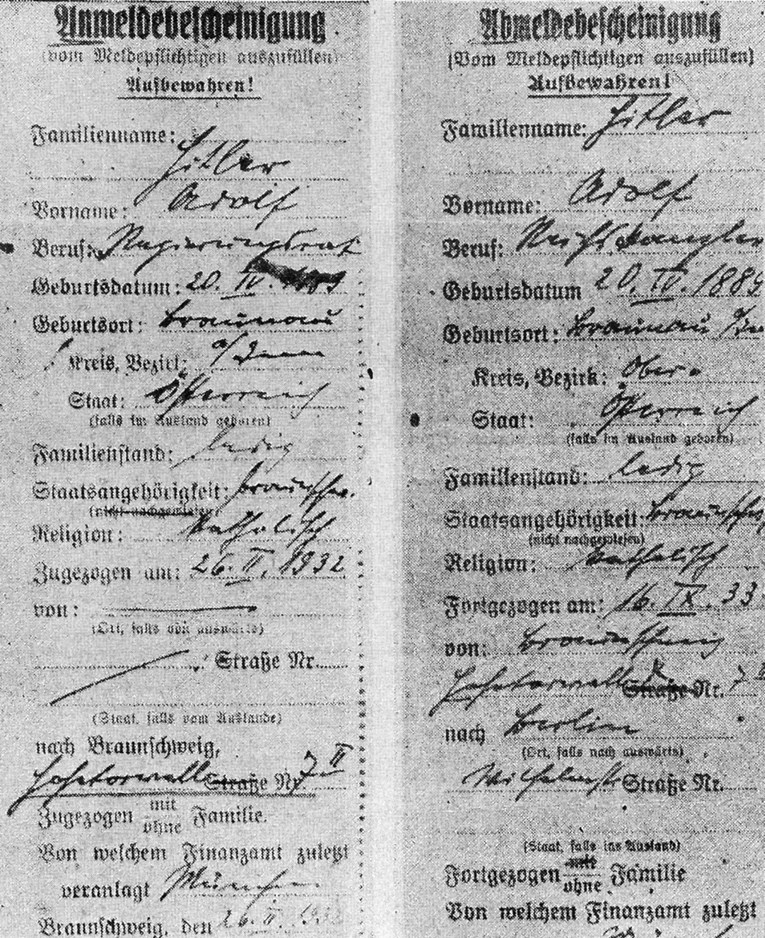 Anmeldebescheinigung
(vom Meldepflichtigen auszufüllen)
Aufbewahren!
Familienname:
Hitler
Vorname: Adolf
Beruf: Regierungsrat
Geburtsdatum: 20. IV. 1889
Geburtsort: Braunau
Kreis, Bezirk: a/Inn
Staat: Österreich
(falls im Ausland geboren)
Familienstand: ledig
Staatsangehörigkeit: braunschw.
(nicht nachgewiesen)
Religion: katholisch
Zugezogen am: 26. II. 1932
von:
(Ort, falls von auswärts)
Straße Nr.
(Staat, falls vom Auslande)
nach Braunschweig,
Hohetorwall Straße Nr. 7 II
Zugezogen mit
ohne Familie.
Von welchem Finanzamt zuletzt
veranlagt München
Braunschweig, den 26. II. 193
Abmeldebescheinigung
(Vom Meldepflichtigen auszufüllen)
Aufbewahren!
Familienname: Hitler
Vorname: Adolf
Beruf: Reichskanzler
Geburtsdatum 20. IV. 1889
Geburtsort: Braunau a/Inn
Kreis, Bezirk: Ober-
Staat: Österreich
(falls im Ausland geboren)
Familienstand: ledig
Staatsangehörigkeit: braunschw
(nicht nachgewiesen)
Religion: katholisch
Fortgezogen am: 16. IX. 33
von: Braunschweig
Hohetorwall Straße Nr. 7 II
nach Berlin
(Ort, falls nach auswärts)
Wilhelmstr Straße Nr.
(Staat, falls ins Ausland)
Fortgezogen mit
ohne Familie
Von welchem Finanzamt zuletzt